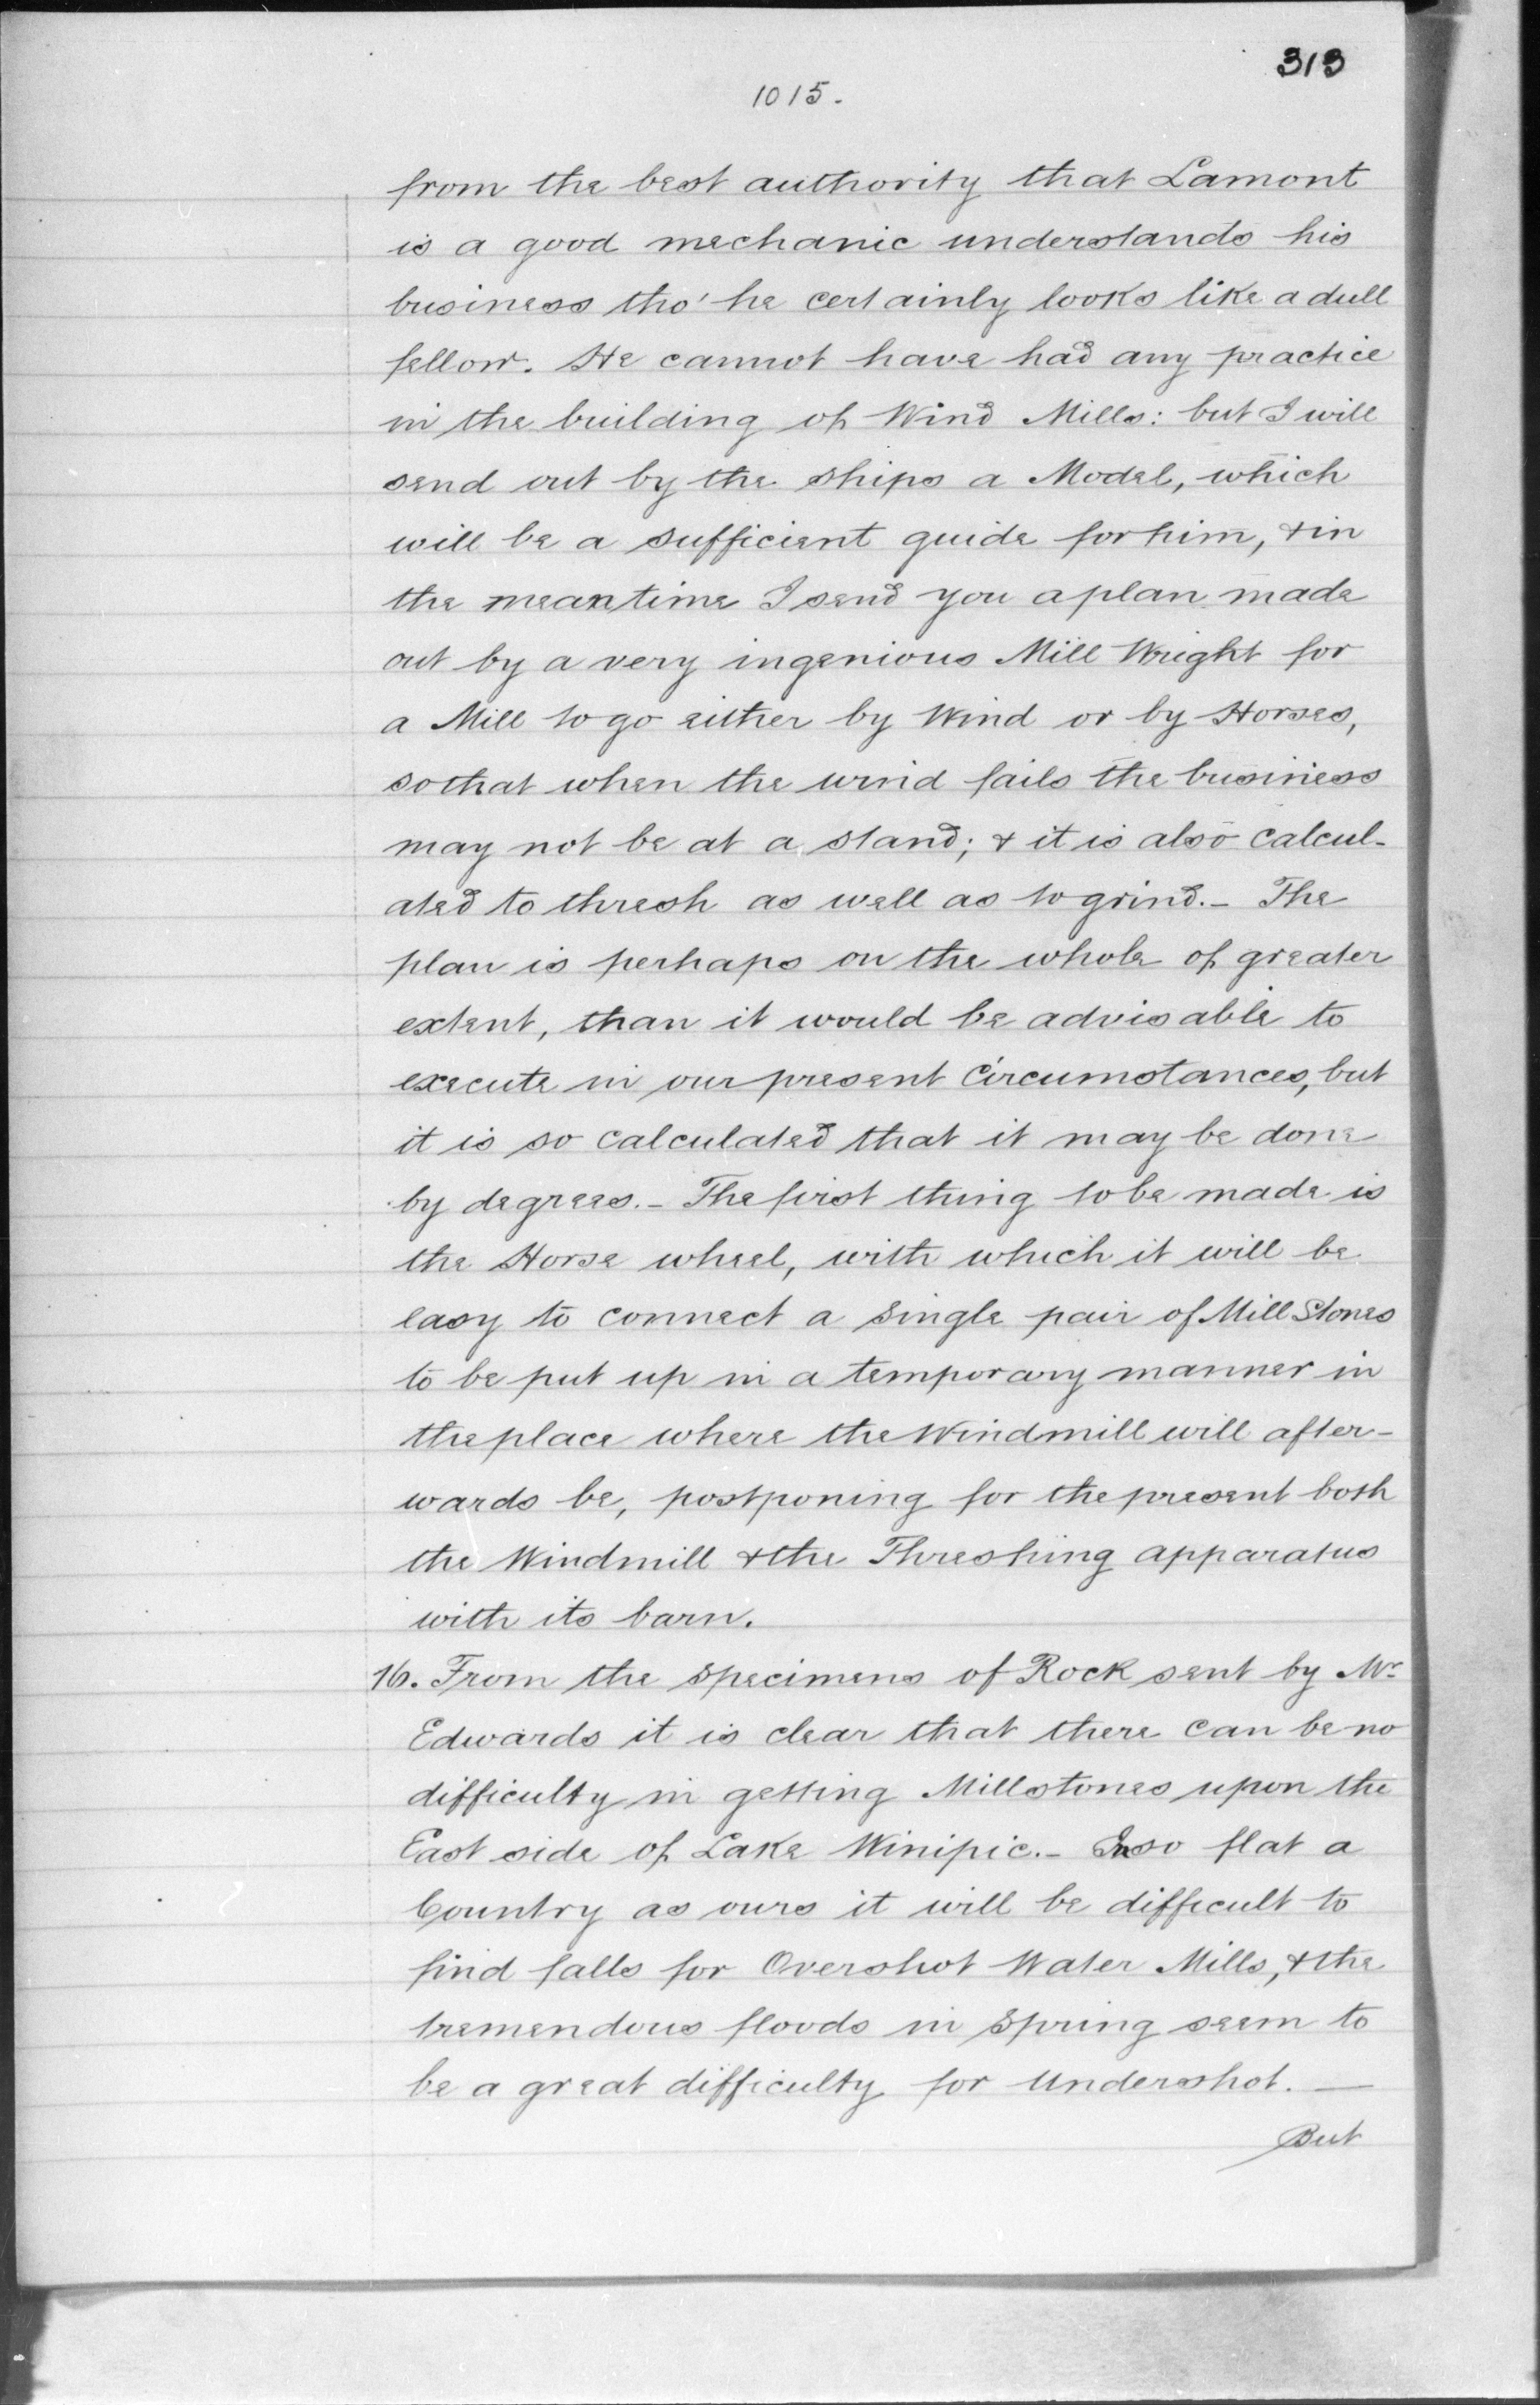 313
1015.
from the best authority that Lamont
is a good mechanic understands his
business tho' he certainly looks like a dull
fellow. He cannot have had any practice
in the building of Wind Mills: but I will
send out by the ships a Model, which
will be a sufficient guide for him, & in
the meantime I send you a plan made
out by a very ingenious Mill Wright for
a Mill to go either by Wind or by Horses,
so that when the wind fails the business
may not be at a stand; & it is also calcul-
ated to thresh as well as to grind.- The
plan is perhaps on the whole of greater
extent, than it would be advisable to
execute in our present Circumstances, but
it is so calculated that it may be done
by degrees.- The first thing to be made is
the Horse wheel, with which it will be
easy to connect a single pair of Mill Stones
to be put up in a temporary manner in
the place where the Windmill will after-
wards be, postponing for the present both
the Windmill & the Threshing apparatus
with its barn.
16. From the specimens of Rock sent by Mr
Edwards it is clear that there can be no
difficulty in getting Millstones upon the
East side of Lake Winipic.- In so flat a
Country as ours it will be difficult to
find falls for Overshot Water Mills, & the
tremendous floods in Spring seem to
be a great difficulty for Undershot. —
But